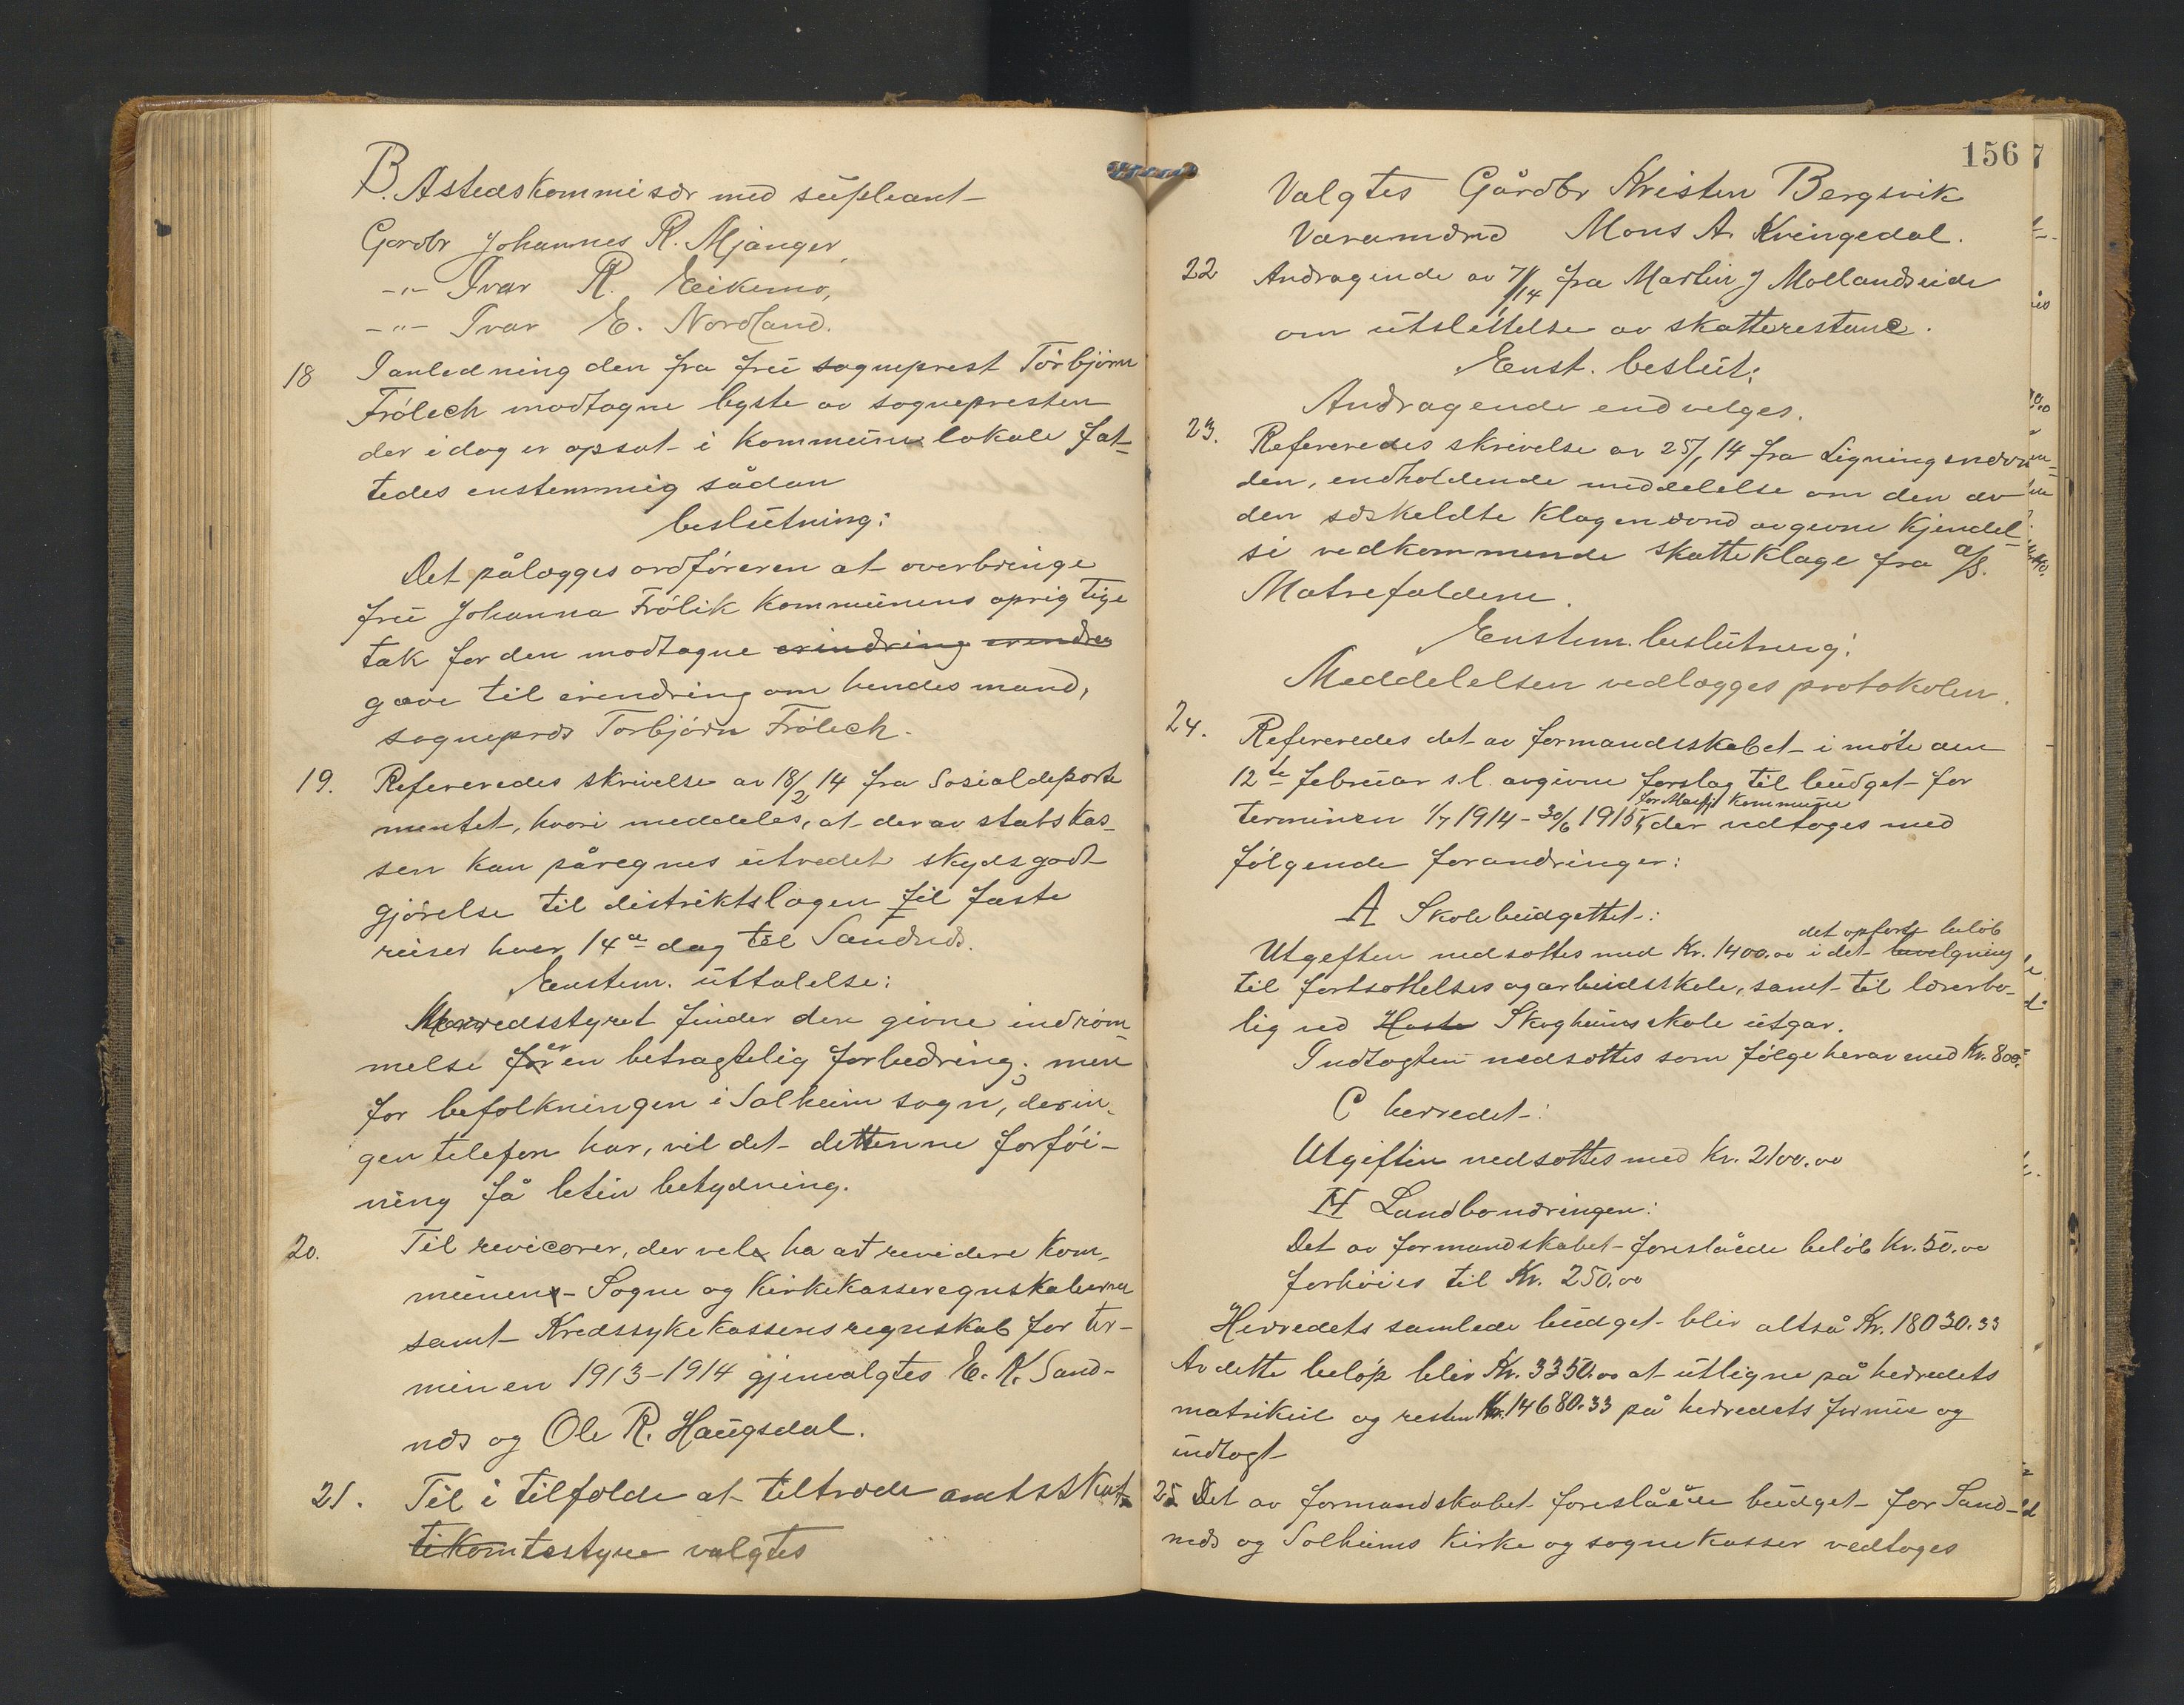 B. Astedskommisær med supleant
Gardbr Johannes R. Mjanger,
-"- Ivar R. Eikemo,
-"- Ivar E. Nordland.
18 I anledning den fra frú sogneprest Torbjörn
Frölich modtagne byste av sognepresten
der idag er opsat i kommúnelokale fat-
tedes enstemmig sådan
beslútning:
Det pålægges ordföreren at overbringe
frú Johanna Frölik kommúnens oprigtige
tak for den modtagne erindring erindren
gave til erindring om hendes mand,
sognepræs Torbjörn Frölich.
19. Refereredes skrivelse av 18/2 14 fra Sosialdeparte
mentet, hvori meddeles, at der av statskas-
sen kan påregnes útredet skydsgodt
gjörelse til distriktslægen til faste
reiser hver 14de dag til Sandnæs.
Enstem. úttalelse:
Herredsstyret finder den givne indröm
melse er en betragtelig forbedring; men
for befolkningen i Solheim sogn, der in-
gen telefon har, vil det denne forföi-
ning få liten betydning.
20. Til revisorer, der vel ha at revidere kom-
múnen - Sogne og kirkekasseregnskaberne
samt Kredssykekassens regnskab for ter-
minen 1913-1914 gjenvalgtes E. K. Sand-
næs og Ole R. Haúgsdal.
21. Til i tilfælde at tiltræde amtsskat-
tekomtestyre valgtes
156
7
Valgtes Gårdbr Kristen Bergsvik
Varamænd Mons A. Kvingedal.
22 Andragende av 7/1 14 fra Martin J Mollandseide
om útslettelse av skatterestance.
Enst. beslút:
Andragende endvelges.
23. Refereredes skrivelse av 25/1 14 fra Ligningsnævn
den, endholdende meddelelse om den av
den særskeldte klagenævnd avgivne kjendel-
se vedkommende skatteklage fra a/s.
Matrefaldene.
Enstem. beslútning:
Meddelelsen vedlægges protokolen.
24. Refereredes det av formandsskabet i möte den
12te februar s.l. avgivne forslag til búdget for
for Masfj. kommúne
terminen 1/7 1914 - 30/6 1915, der vedtoges med
fölgende forandringer:
A Skolebúdgettet:
det opförte belöb
Utgeften nedsattes med Kr. 1400.00 i det bevilgning
til fortsættelses og arbeidsskole, samt til lærerbo-
lig ved Haste Skogheims skole útgar.
Indtægten nedsattes som fölge herav med Kr. 800.=
C herredet:
Utgeften nedsattes med Kr. 2100.00
H Landbonæringen:
Det av formandskabet foreslåede belöb Kr. 50.00
forhöies til Kr. 250.00
Herredets samlede búdget blir altså Kr. 18030.33
Av dette belöp blir Kr. 3350.00 at útligne på herredets
matrikúl og resten Kr. 14680.33 på herredets formúe og
indtægt
25 Det av formandskabet foreslåede búdget for Sand-
næs og Solheims kirke og sognekasser vedtoges